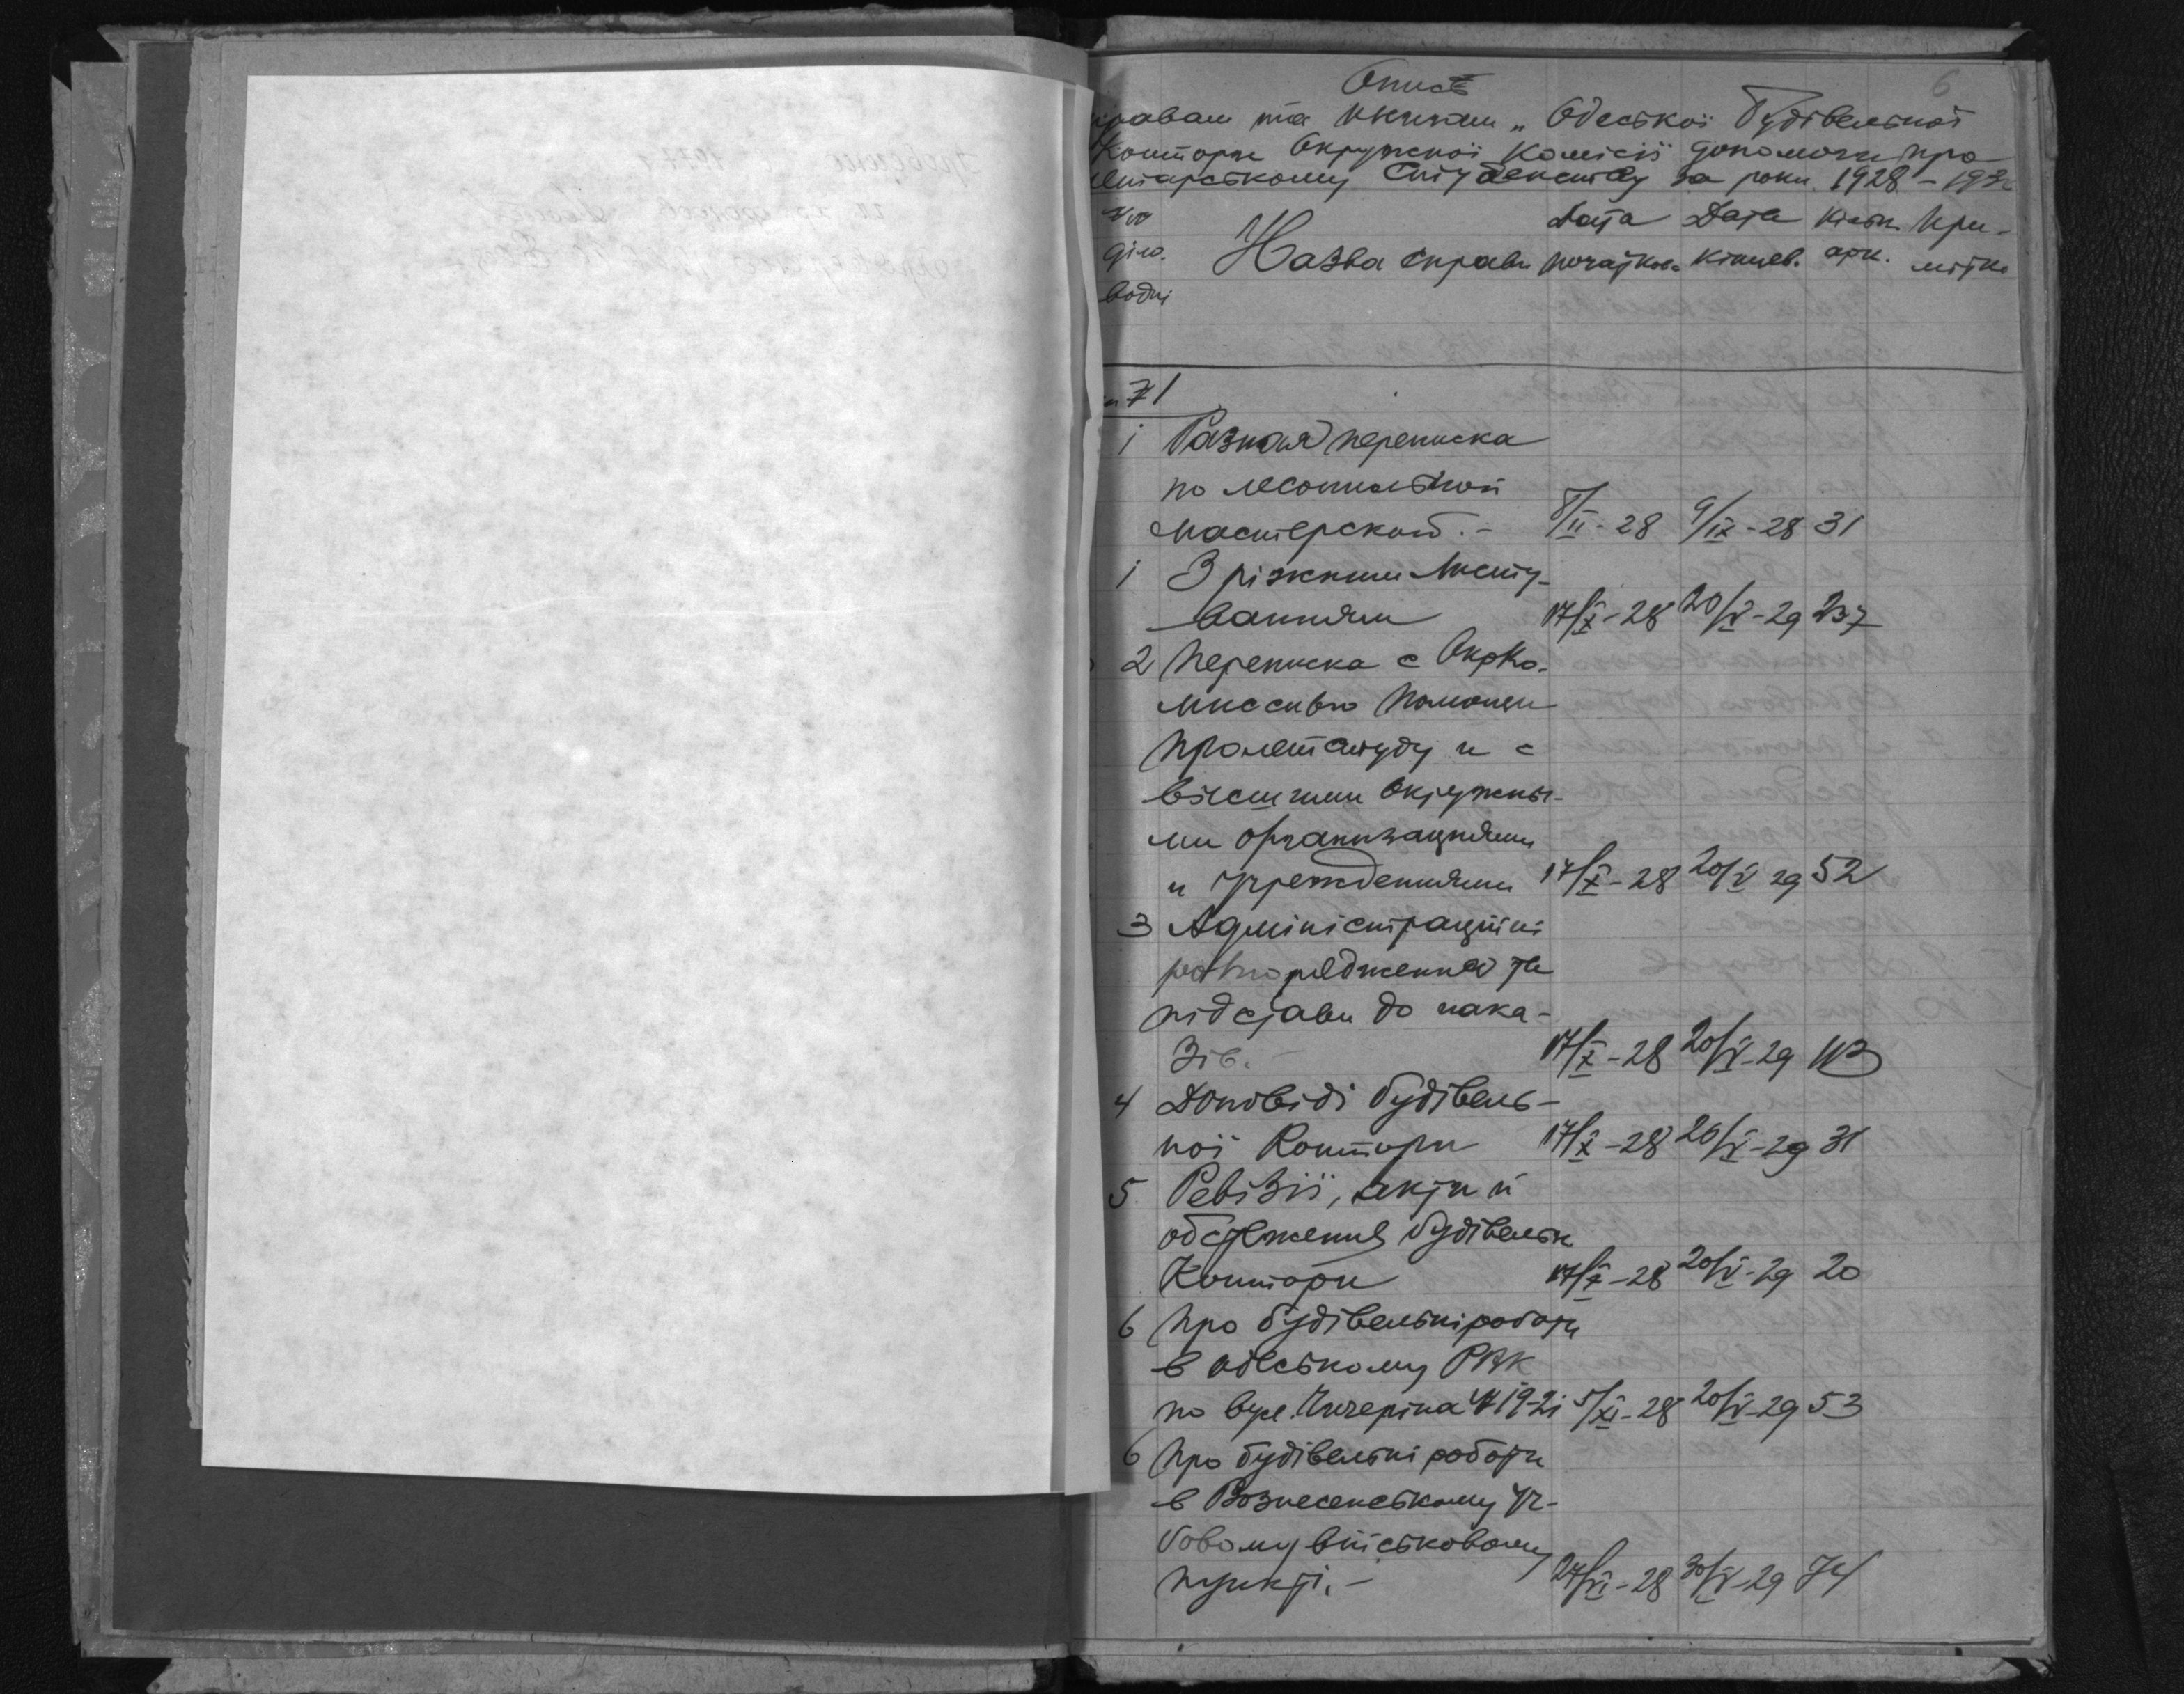 6
Опись
справам та книгам „Одеської Будівельної
Контори Окружної Комісії допомоги про-
летарському Студенству за роки 1928 – 193
№№ Дата Дата Кільк. При-
діло. Назва справи початков. кінцев. арк. мітка
водні
1
1 Разная переписка
по
мастерской. – 8/II-28 9/IX-28 31
1 З ріжними Листу-
ванням 17/X-28 20/V-29 237
2 Переписка с Окрко-
миссиею помощи
пролетстуду и с
высшими окружны-
ми организациями
и учреждениями 17/X-28 20/V 29 52
3 Адміністраційні
розпорядження та
підстави до нака-
зів. 17/X-28 20/V-29 113
4 Доповіді будівель-
ної Контори 17/X-28 20/V-29 31
5 Ревізії, акти й
обстеження будівельн
Контори 17/X-28 20/V-29 20
6 Про будівельні роботи
в одеському РАК
по вул. Чичеріна № 19-21 5/XI-28 20/V-29 53
6 Про будівельні роботи
в Вознесенському Уч-
бовому військовому
пункті. – 27/VI-28 30/V-29 74